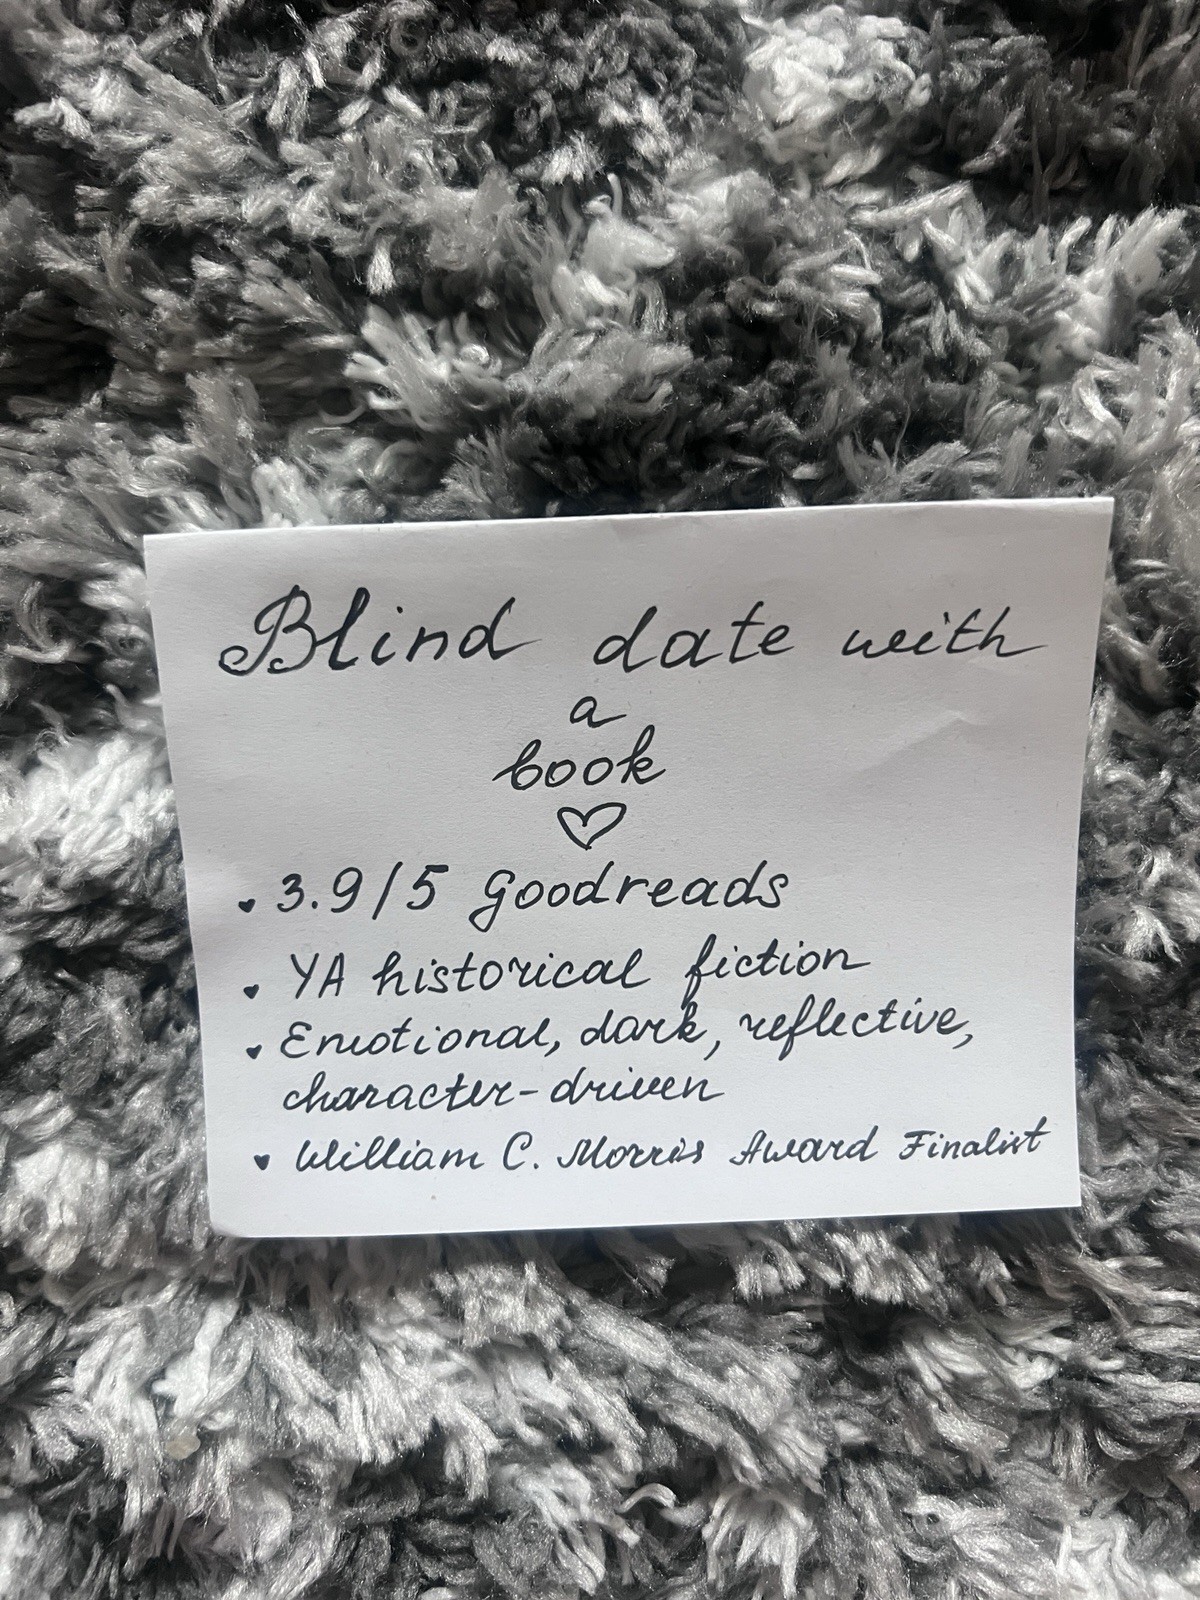 Blind date with
a
book
♡
♥ 3.9/5 goodreads
♥ YA historical fiction
♥ Emotional, dark, reflective,
character-driven
♥ William C. Morris Award Finalist